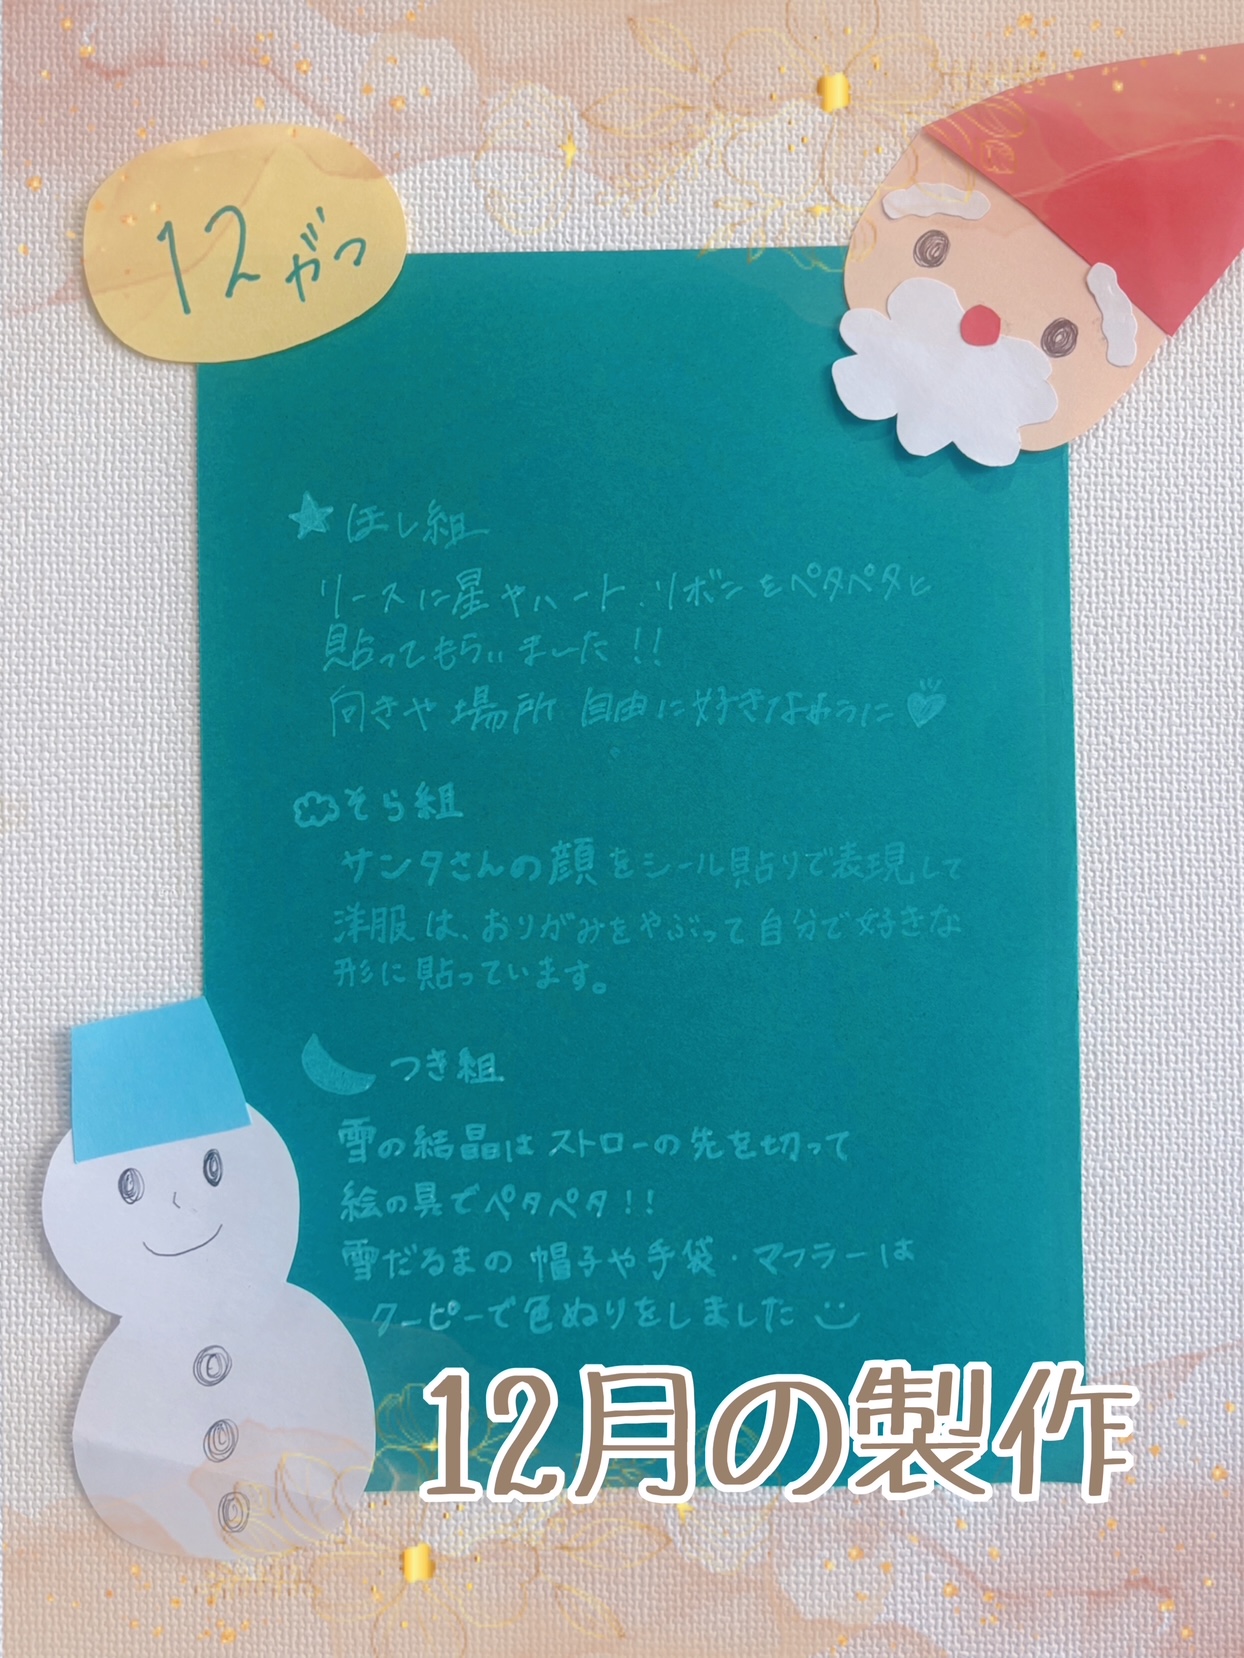 12がつ
★ほし組
リースに星やハート、リボンをペタペタと
貼ってもらいました!!
向きや場所 自由に好きなように
そら組
サンタさんの顔をシール貼りで表現して
洋服は、おりがみをやぶって自分で好きな
形に貼っています。
つき組
雪の結晶はストローの先を切って
絵の具でペタペタ!!
雪だるまの帽子や手袋・マフラーは
クーピーで色ぬりをしました
12月の製作